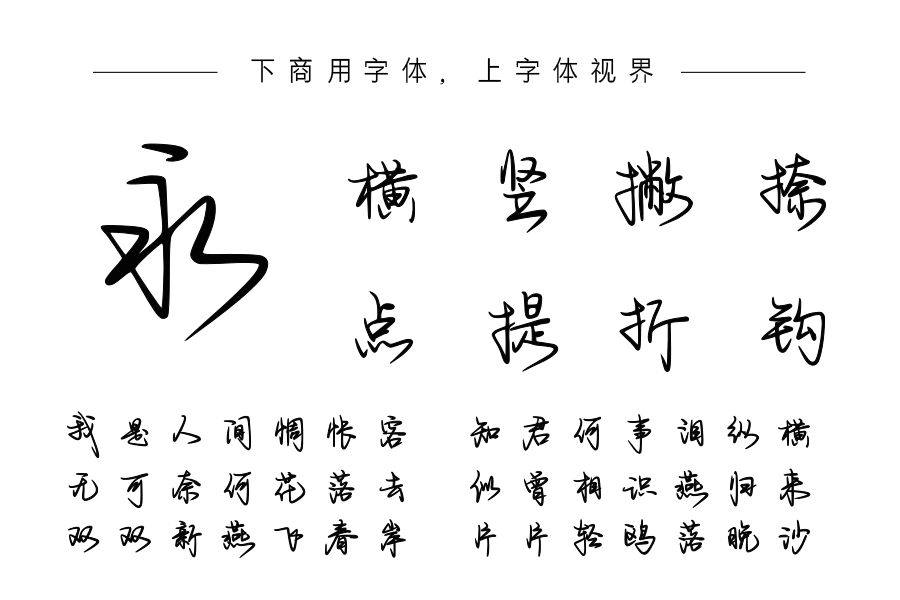 下商用字体,上字体视界
永
横 竖 撇 捺
点 提 折 钩
我是人间惆怅客 知君何事泪纵横
无可奈何花落去 似曾相识燕归来
双双新燕飞春岸 片片轻鸥落晚沙